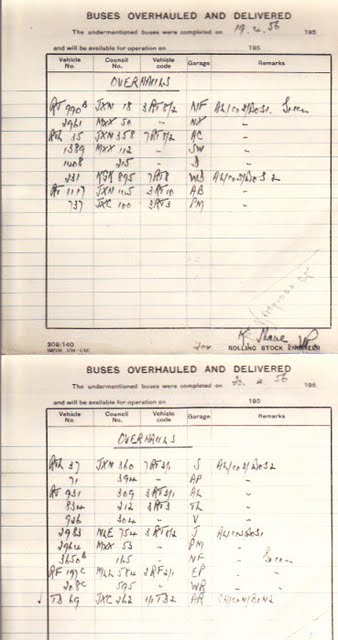 BUSES OVERHAULED AND DELIVERED
The undermentioned buses were completed on 19.4.56 195
and will be available for operation on 195
Vehicle No. Council No. Vehicle code Garage Remarks
OVERHAULS
RT 990 JXN 18 3RT5/2 NF
2961 MXX 50 " NX "
RTL 35 JXN 358 7RT3/2 AC "
1389 MXX 112 " SW "
1408 215 " "
231 KGK 895 7RT8
RT 1107 JXN 105 3RT10 AB "
737 JXC 100 3RT3 PM "
308/140
for ROLLING STOCK ENGINEER
BUSES OVERHAULED AND DELIVERED
The undermentioned buses were completed on 20.4.56 195
and will be available for operation on 195
Vehicle No. Council No. Vehicle code Garage Remarks
OVERHAULS
RTL 37 JXN 360 J
71 394 " AP "
RT 931 309 3RT3/1 AL "
834 212 3RT3 TH "
926 304 " V "
2983 NLE 754 J
2964 MXX 53 " PM "
3650 165 " NF "
RF 197 MLL 584 2RF2/1 EP "
208 595 " WR "
TD 69 JXC 262 1/1TD2 AR